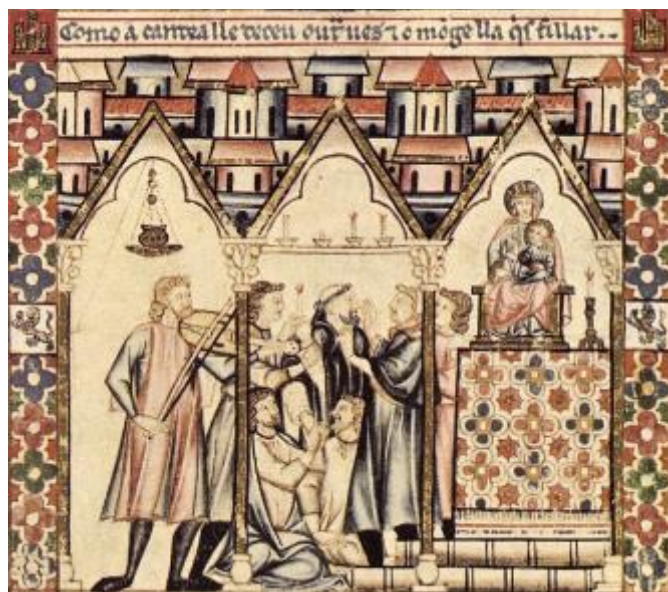 Como a candea lle deceu outra ues ⁊ o móge lla q̇s fillar..